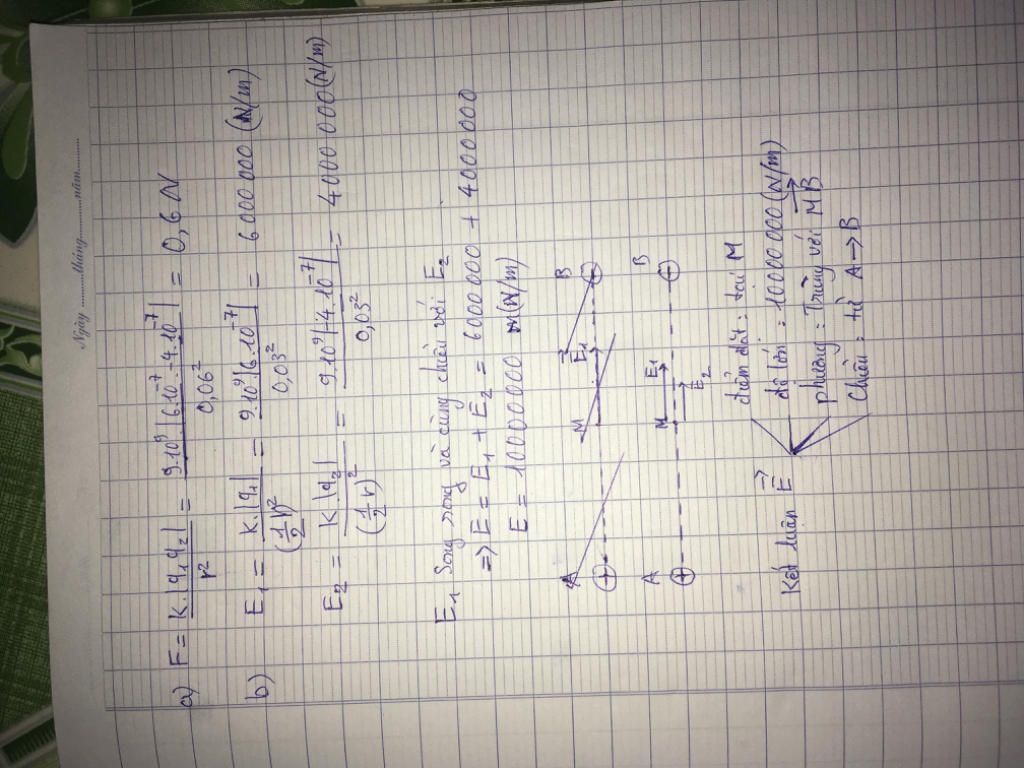 Ngày ............tháng............năm............
a) F = K.|q₁q₂| / r² = 9.10⁹|6.10⁻⁷.-4.10⁻⁷| / 0,06² = 0,6 N
b) E₁ = K|q₁| / (1/2 r)² = 9.10⁹|6.10⁻⁷| / 0,03² = 6000000 (N/m)
E₂ = K|q₂| / (1/2 r)² = 9.10⁹|-4.10⁻⁷| / 0,03² = 4000000 (N/m)
E₁ Song song và cùng chiều với E₂
=> E = E₁ + E₂ = 6000000 + 4000000
E = 10000000 (N/m)
A M E₁ B
A M E₁ B
E₂
điểm đặt: tại M
Kết luận E⃗ độ lớn: 10000000 (N/m)
phương: Trùng với MB
Chiều: từ A → B